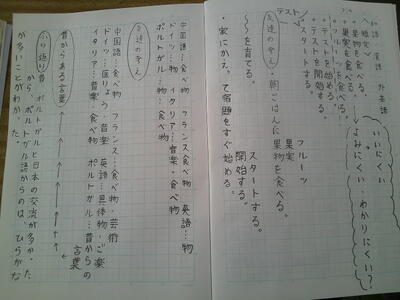 和語 漢語 外来語
果実を食べる。
果物を食べる。
フルーツを食べる。
テストを始める。
テストを開始する。
スタートする。
テスト
いいにくい
よみにくい、わかりにくい?
友達の考え
・朝ごはんに果物を食べる。
果実
フルーツ
スタートする。
開始する。
〜を育てる。
・家にかえって宿題をすぐ始める。
中国語…食べ物 フランス…食べ物 英語…物
ドイツ…物 イタリア…音楽・食べ物
ポルトガル…物・食べ物
友達の考え
中国語…食べ物 フランス…食べ物 芸術
ドイツ…医りょう・音楽 英語…具体物・ご楽
イタリア…音楽・食べ物 ポルトガル…昔からの
言葉
昔からある言葉
ふり返り
昔、ポルトガルと日本の交流が多かった
から、ポルトガル語からのは、ひらがな
が多いことがわかった。